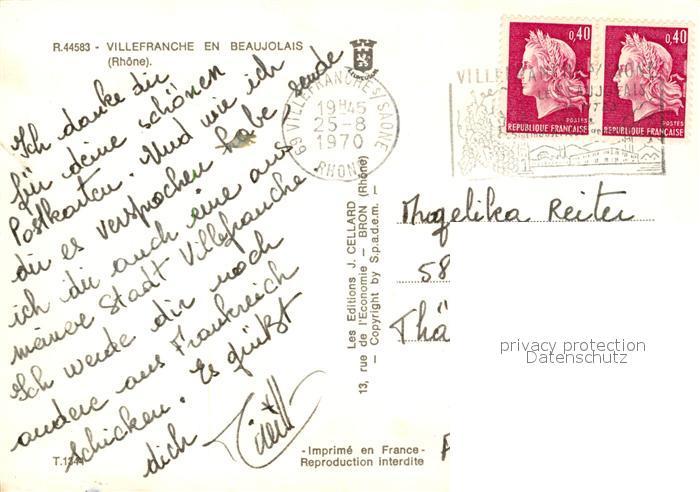 R.44583 - VILLEFRANCHE EN BEAUJOLAIS
(Rhône).
Ich danke dir
für deine schönen
Postkarten. Und wie ich
dir es versprochen habe sende
ich dir auch eine aus
meiner Stadt Villefranche
Ich werde dir noch
andere aus Frankreich
schicken. Es grüßt
dich
T.1344
69 VILLEFRANCHE S/ SAONE
19 H45
25-8
1970
RHONE
0,40
0,40
POSTES
POSTES
REPUBLIQUE FRANÇAISE
REPUBLIQUE FRANÇAISE
VILLEFRANCHE S/SAONE
BEAUJOLAIS
Les Editions J. CELLARD
13, rue de l'Economie - BRON (Rhône)
- Copyright by S.p.a.d.e.m. -
Angelika Reiter
58
Thä
privacy protection
Datenschutz
-Imprimé en France-
Reproduction interdite